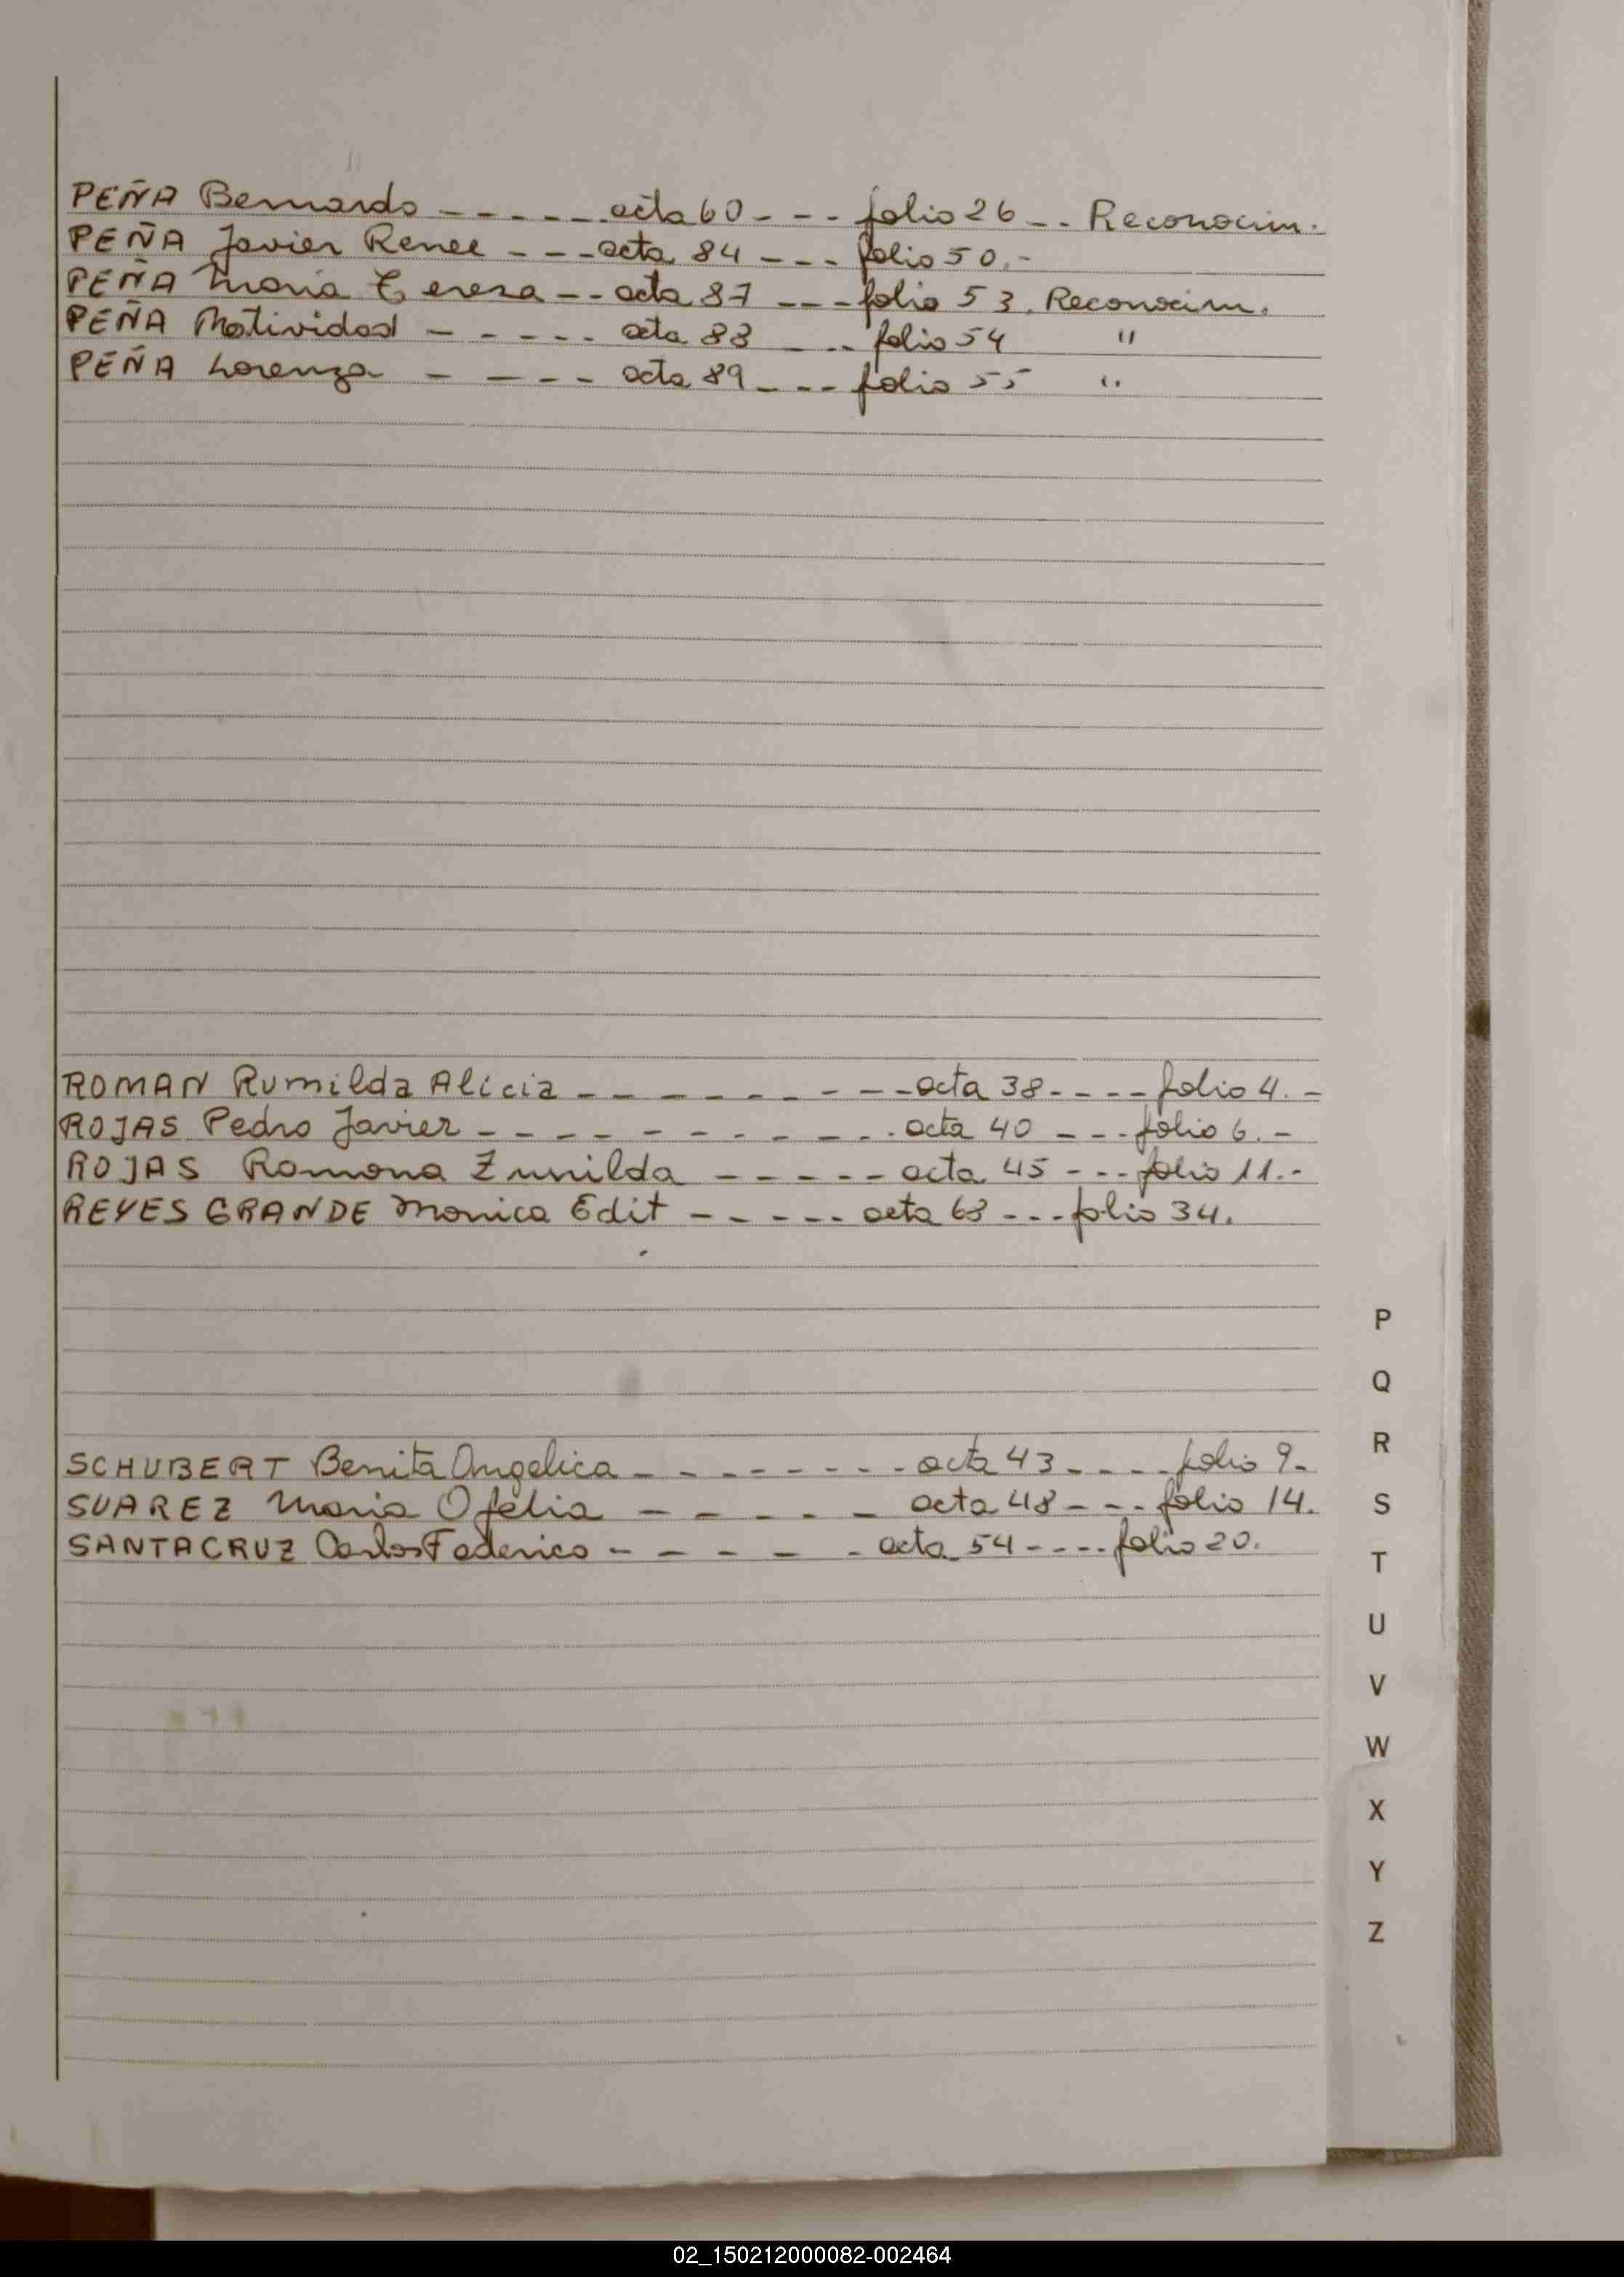 PEÑA Bernardo - - - - - - acta 60 - - - folio 26 - - Reconocim.
PEÑA Javier Renee - - - acta 84 - - - folio 50.-
PEÑA Maria Teresa - - acta 87 - - - folio 53. Reconocim.
PEÑA Natividad - - - - - acta 88 - - - folio 54 "
PEÑA Lorenza - - - - acta 89 - - - folio 55 "
ROMAN Rumilda Alicia - - - - - - - - - acta 38 - - - - folio 4.-
ROJAS Pedro Javier - - - - - - - - - - acta 40 - - - folio 6.-
ROJAS Ramona Zunilda - - - - - acta 45 - - - folio 11.-
REYES GRANDE Monica Edit - - - - - acta 68 - - - folio 34.
SCHUBERT Benita Angelica - - - - - - - - acta 43 - - - - folio 9-
SUAREZ Maria Ofelia - - - - - acta 48 - - - folio 14.
SANTACRUZ Carlos Federico - - - - - - acta 54 - - - - folio 20.
P
Q
R
S
T
U
V
W
X
Y
Z
02_150212000082-002464